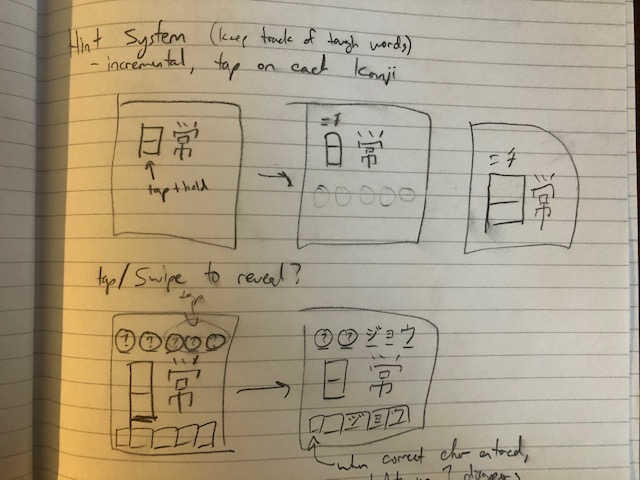 Hint System (keep track of tough words)
- incremental, tap on each Kanji
日常
tap + hold
ニチ
日常
ニチ
日常
tap/Swipe to reveal?
tap
? ? ? ? ?
日常
? ? ジョウ
日常
ジョウ
when correct char entered,
? disappears